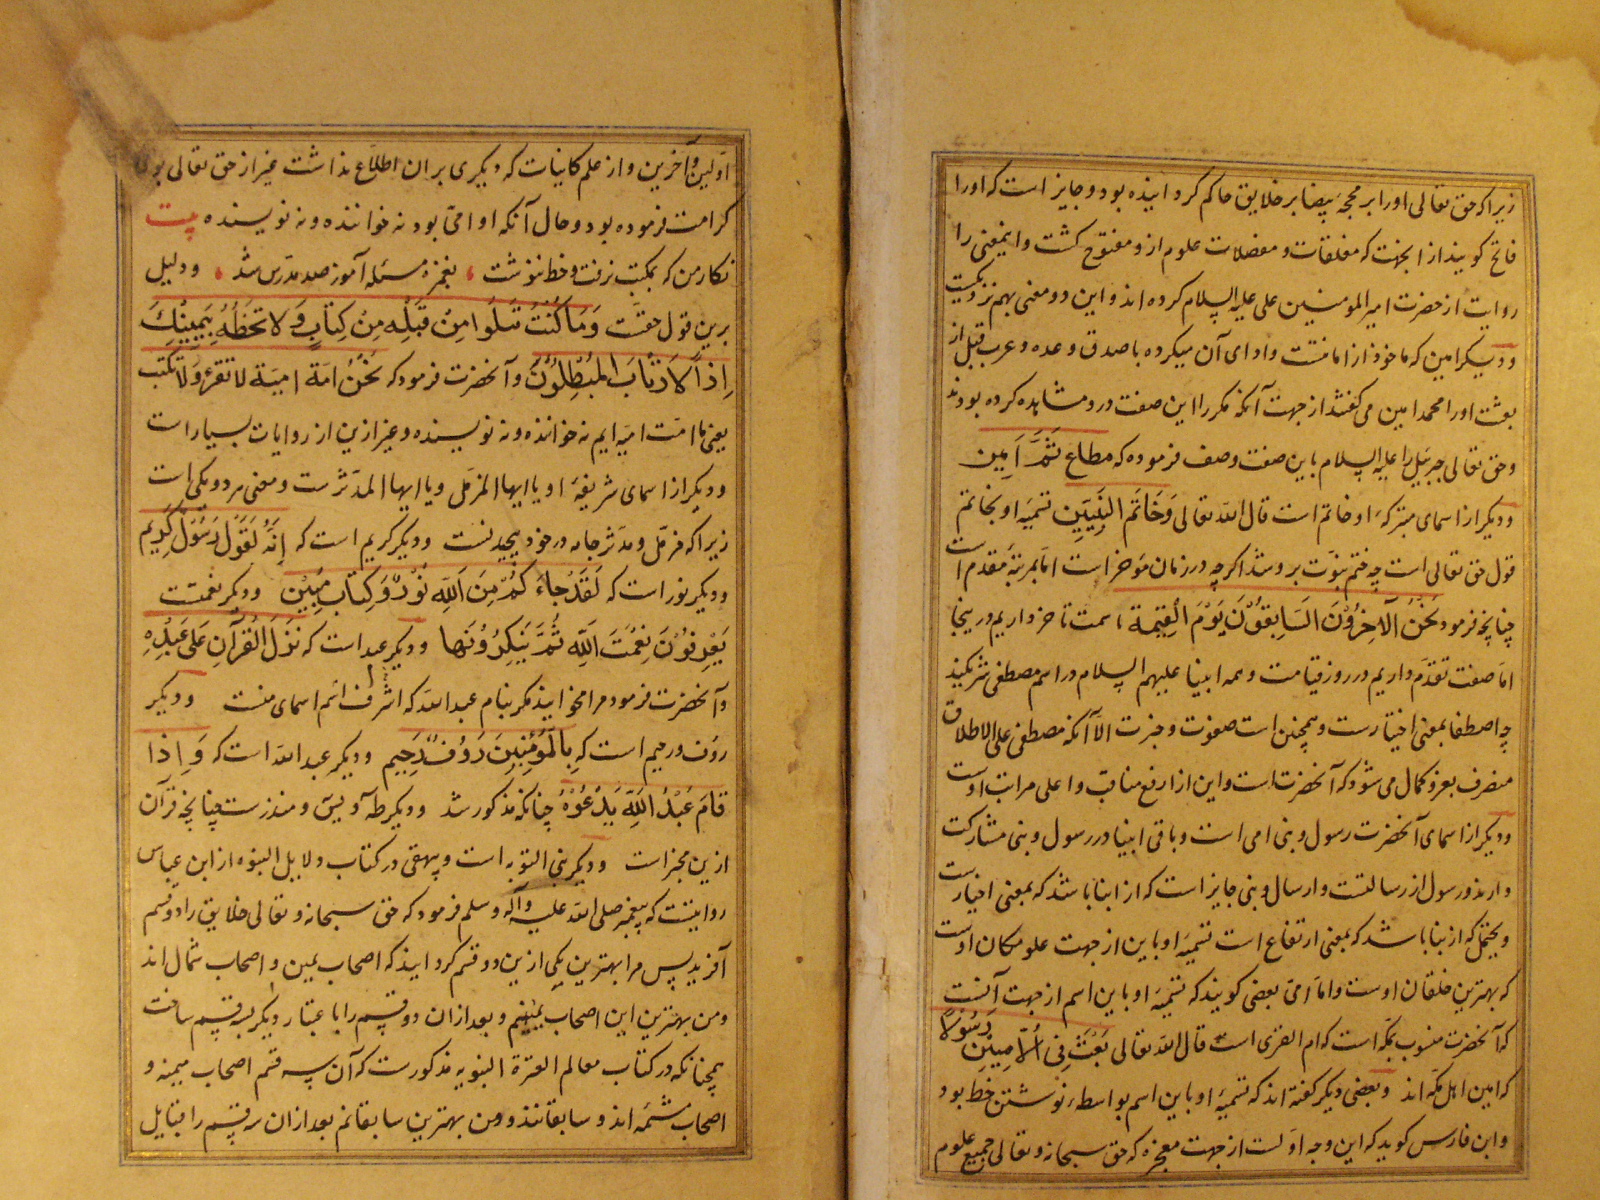 زیرا که حق تعالی او را بر محجه بیضا بر خلایق حاکم کردانیده بود و جایز است که او را
فاتح کویند از انجهت که مغلقات و معضلات علوم ازو مفتوح کشت و اینمعنی را
روایت از حضرت امیر المومنین علی علیه السلام کرده اند و این دو معنی بهم نزدیکست
و دیکر امین که ماخوذ از امانتست و ادای آن میکرده با صدق وعده و عرب قبل از
بعثت او را محمد امین می کفتند از جهت آنکه مکرر این صفت درو مشاهده کرده بودند
و حق تعالی جبرئیل را علیه السلام باین صفت وصف فرموده که مطاع ثَمَّ اَمین
و دیکر از اسمای متبرکهٔ او خاتم است قال الله تعالی وَخَاتَم النَّبِیّینَ تسمیه او بخاتم
قول حق تعالی است چه ختم نبوت برو شد اکرچه در زمان مؤخر است اما بمرتبه مقدم است
چنانچه فرمود نَحْنُ الآخِرُوْنَ السَابِقُوْنَ یَوْمَ الْقِیمة سمت تاخر داریم در ینجا
اما صفت تقدم داریم در روز قیامت و همه انبیا علیهم السلام در اسم مصطفی شریکند
چه اصطفا بمعنی اختیارست و همچنین است صفوت و خیرت الا آنکه مصطفی علی الاطلاق
منصرف بفرد کمال می شود که آنحضرتست و این از ارفع مناقب و اعلی مراتب اوست
و دیکر از اسمای آنحضرت رسول و نبی امی است و باقی انبیا در رسول و نبی مشارکت
دارند و رسول از رسالتست و ارسال و نبی جایز است که از انبا باشد که بمعنی اخبارست
و یحتمل که از نبا باشد که بمعنی ارتفاع است تسمیه او باین از جهت علو مکان اوست
که بهترین خلقان اوست و اما امی بعضی کویند که تسمیه او باین اسم از جهت آنست
که آنحضرت منسوب بمکه است که ام القری است قال الله تعالی بَعَثَ فِی الْاُمّیّیْنَ رَسُولًا
که امیین اهل مکه اند و بعضی دیکر کفته اند که تسمیه او باین اسم بواسطهٔ نوشتن خط بود
و ابن فارس کوید که این وجه اولست از جهت معجزه که حق سبحانه و تعالی جمیع علوم
اولین و آخرین و از علم کاینات که دیکری بر ان اطلاع نداشت غیر از حق تعالی بوی
کرامت فرموده بود و حال آنکه او امی بود نه خواننده و نه نویسنده بیت
نکار من که بمکتب نرفت و خط ننوشت ، بغمزه مسئله آموز صد مدرس شد ، و دلیل
برین قول حقست وَمَا کُنْتَ تَتلُوا مِنْ قَبْلِه مِنْ کِتٰابٍ وَلا تخطّهُ بِیَمِیْنِكَ
اِذًا لَارْتٰابَ الْمُبْطِلُوْنَ و آنحضرت فرمود که نَحْنُ امَة امیة لا نقرء و لا نکتب
یعنی ما امت امیه ایم نه خواننده و نه نویسنده و غیر ازین از روایات بسیار است
و دیکر از اسمای شریفهٔ او یا ایها المزمل و یا ایها المدثرست و معنی هر دو یکی است
زیرا که مزمل و مدثر جامه در خود پیچیدنست و دیکر کریم است که اِنَّهُ لَقَوْلُ رَسُوْلٍ کَرِیم
و دیکر نور است که لَقَدْ جٰاءَ کُمْ مِنَ اللّٰهِ نُوْرٌ وَ کِتٰاب مُبِیْن و دیکر نعمتست
یَعْرِفُوْنَ نِعْمَتَ اللّٰهِ ثُمَّ یُنکِرُوْنَهٰا و دیکر عبد است که نَزَّلَ الْفُرْقَانَ عَلی عَبْدِهِ
و آنحضرت فرمود مرا مخوانید مکر بنام عبد الله که اشرف اسم اسمای منست و دیکر
رؤف و رحیم است که بِالْمُؤْمِنِیْنَ رَؤُفٌ رَحِیم و دیکر عبد الله است که وَ اِذا
قامَ عَبْدُ اللّٰهِ یَدْعُوْهُ چنانکه مذکور شد و دیکر طه و یس و منذرست چنانچه قرآن
ازین مخبر است و دیکر نبی التوبه است و بیهقی در کتاب دلایل النبوه از ابن عباس
روایتست که پیغمبر صلی الله علیه وآله وسلم فرمود که حق سبحانه و تعالی خلایق را دو قسم
آفرید پس مرا بهترین یکی ازین دو قسم کردانید که اصحاب یمین و اصحاب شمال اند
و من بهترین این اصحاب یمینم و بعد ازان دو قسم را باعتبار دیکر سه قسم ساخت
همچنانکه در کتاب معالم العترة النبویه مذکورست که آن سه قسم اصحاب میمنه و
اصحاب مشئمه اند و سابقانند و من بهترین سابقانم بعد ازان سه قسم را قبایل